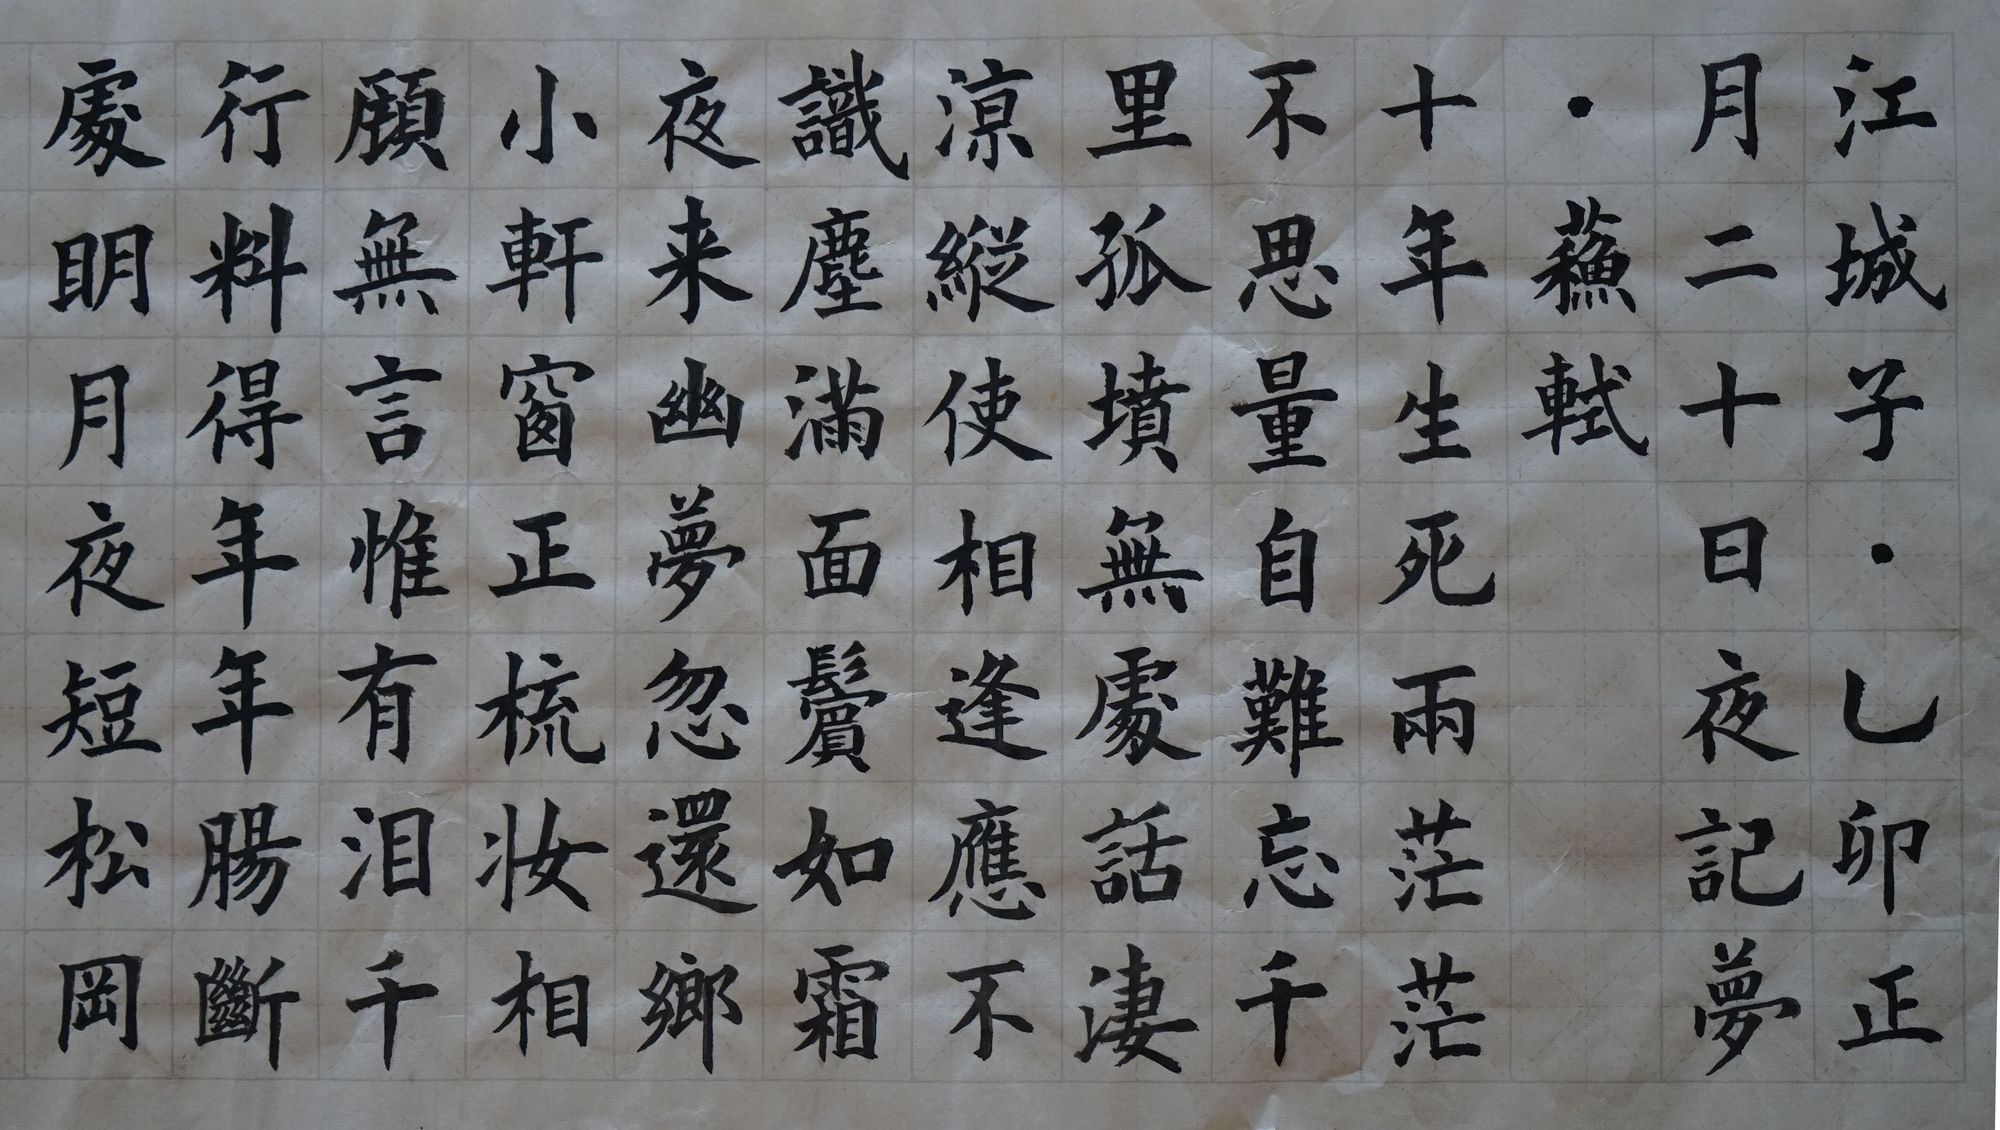 江城子·乙卯正
月二十日夜記夢
·蘓軾
十年生死兩茫茫
不思量自難忘千
里孤墳無處話淒
涼縱使相逢應不
識塵滿面鬢如霜
夜来幽夢忽還鄉
小軒窗正梳妝相
顧無言惟有泪千
行料得年年腸斷
處明月夜短松岡